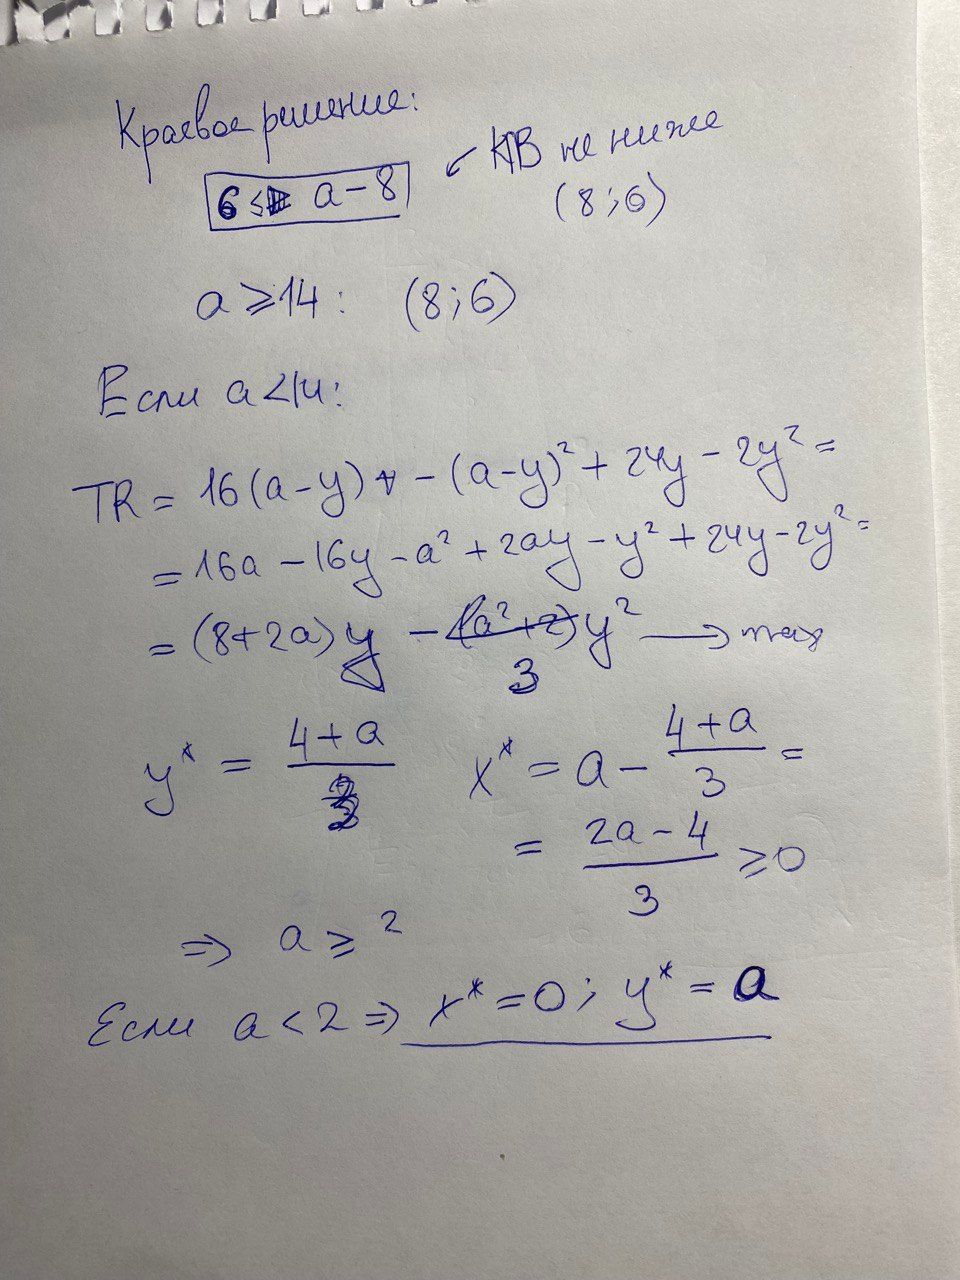 Краевое решение:
6 ≤ a − 8 ↙ КПВ не ниже
(8;6)
a ≥ 14: (8;6)
Если a < 14:
TR = 16(a−y) − (a−y)² + 24y − 2y² =
= 16a − 16y − a² + 2ay − y² + 24y − 2y² =
= (8+2a)y − 3y² → max
y* = (4+a)/3 x* = a − (4+a)/3 =
= (2a−4)/3 ≥ 0
⇒ a ≥ 2
Если a < 2 ⇒ x* = 0; y* = a